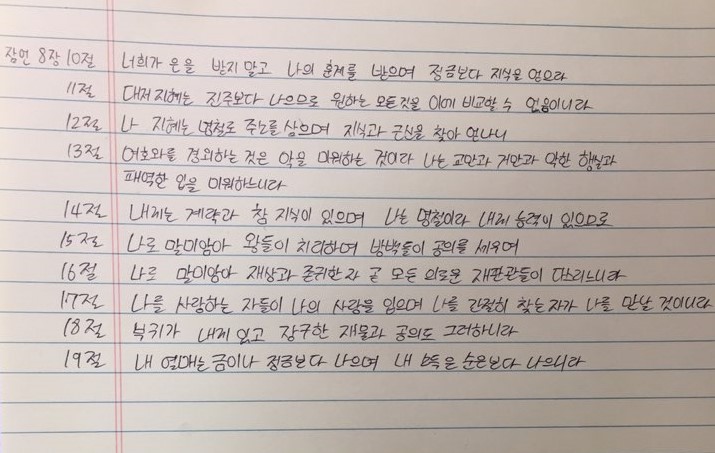 잠언 8장 10절 너희가 은을 받지 말고 나의 훈계를 받으며 정금보다 지식을 얻으라
11절 대저 지혜는 진주보다 나으므로 원하는 모든것을 이에 비교할 수 없음이니라
12절 나 지혜는 명철로 주소를 삼으며 지식과 근신을 찾아 얻나니
13절 여호와를 경외하는 것은 악을 미워하는 것이라 나는 교만과 거만과 악한 행실과
패역한 입을 미워하느니라
14절 내게는 계략과 참 지식이 있으며 나는 명철이라 내게 능력이 있으므로
15절 나로 말미암아 왕들이 치리하며 방백들이 공의를 세우며
16절 나로 말미암아 재상과 존귀한자 곧 모든 의로운 재판관들이 다스리느니라
17절 나를 사랑하는 자들이 나의 사랑을 입으며 나를 간절히 찾는자가 나를 만날 것이니라
18절 부귀가 내게 있고 장구한 재물과 공의도 그러하니라
19절 내 열매는 금이나 정금보다 나으며 내 소득은 순은보다 나으니라